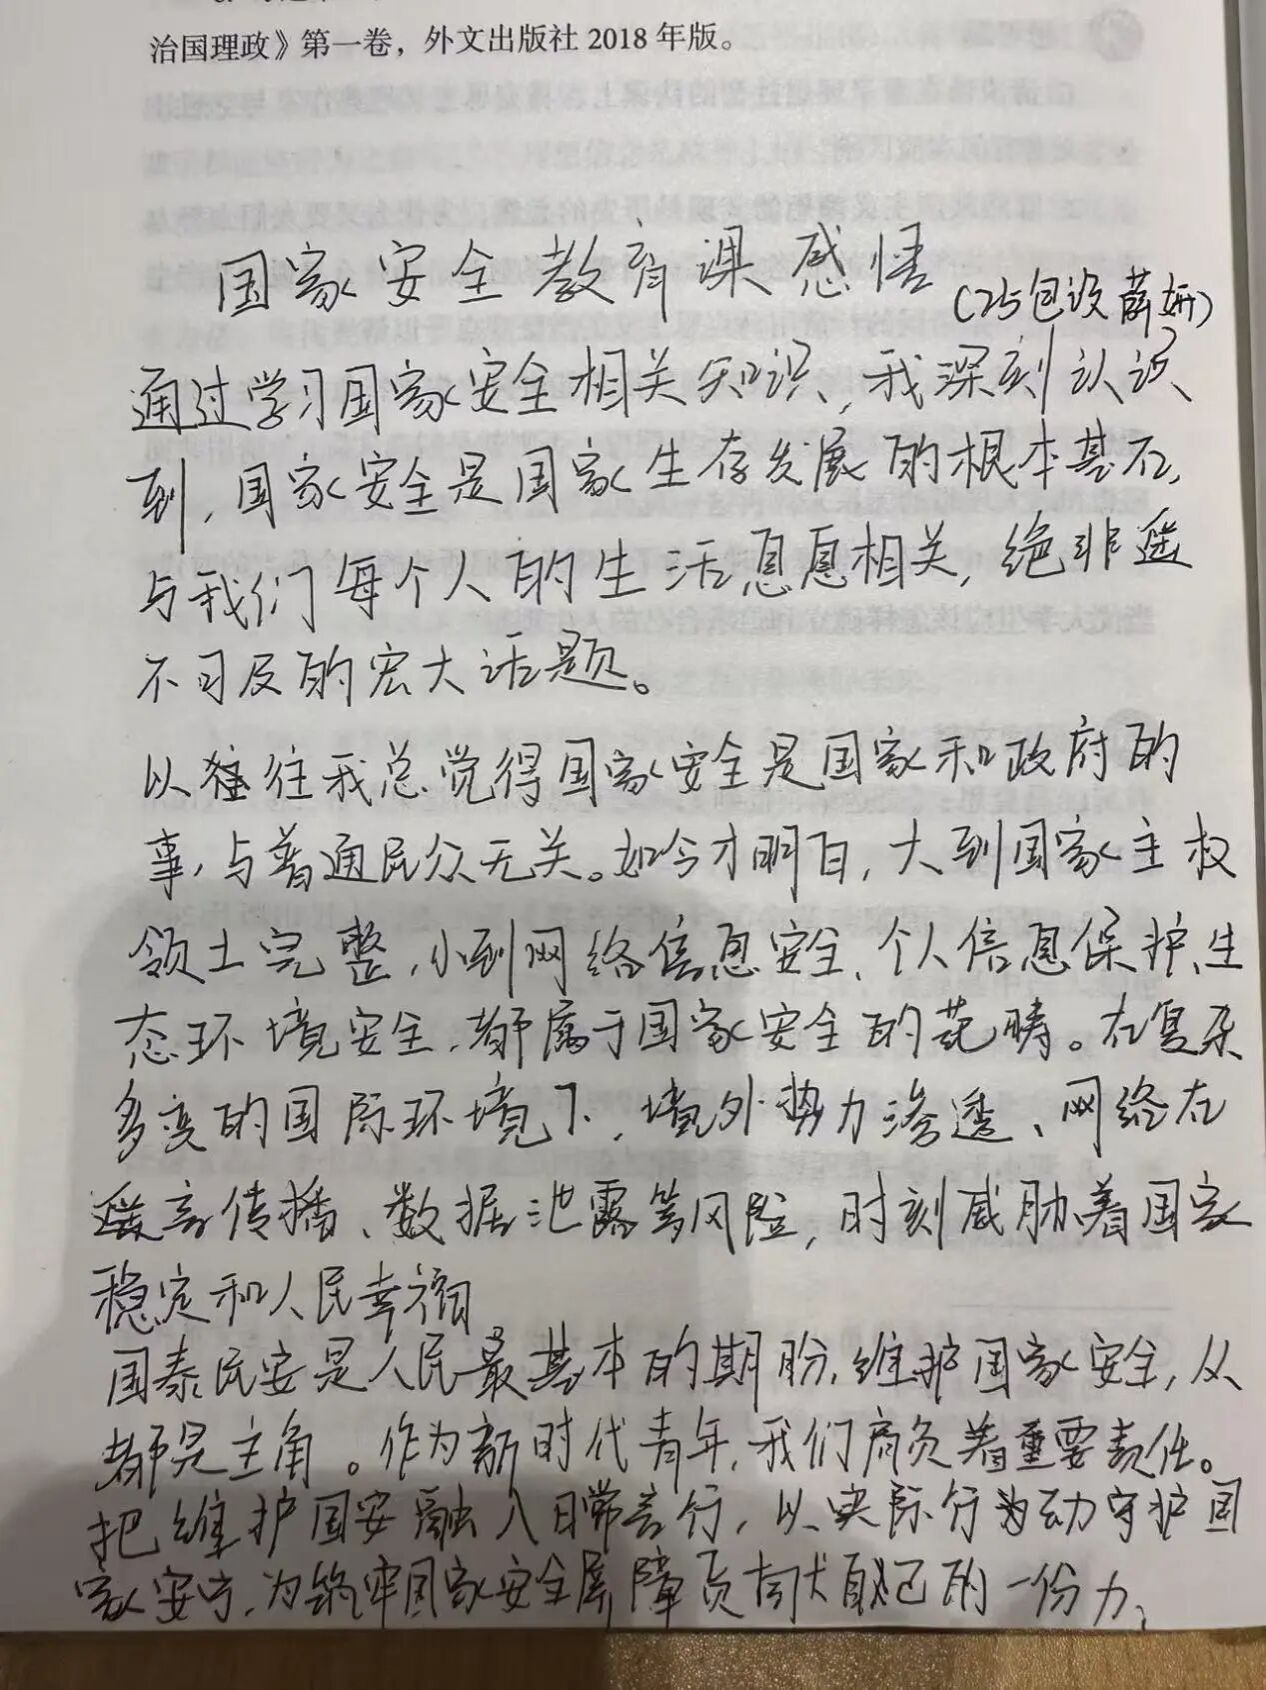 治国理政》第一卷，外文出版社 2018 年版。
国家安全教育课感悟
（25包设薛妍）
通过学习国家安全相关知识，我深刻认识
到，国家安全是国家生存发展的根本基石，
与我们每个人的生活息息相关，绝非遥
不可及的宏大话题。
以往我总觉得国家安全是国家和政府的
事，与普通民众无关。如今才明白，大到国家主权
领土完整，小到网络信息安全、个人信息保护、生
态环境安全，都属于国家安全的范畴。在复杂
多变的国际环境下，境外势力渗透、网络在
谣言传播、数据泄露等风险，时刻威胁着国家
稳定和人民幸福
国泰民安是人民最基本的期盼，维护国家安全，人
都是主角。作为新时代青年，我们肩负着重要责任。
把维护国安融入日常言行，以实际行为动守护国
家安宁，为筑牢国家安全屏障贡献自己的一份力，